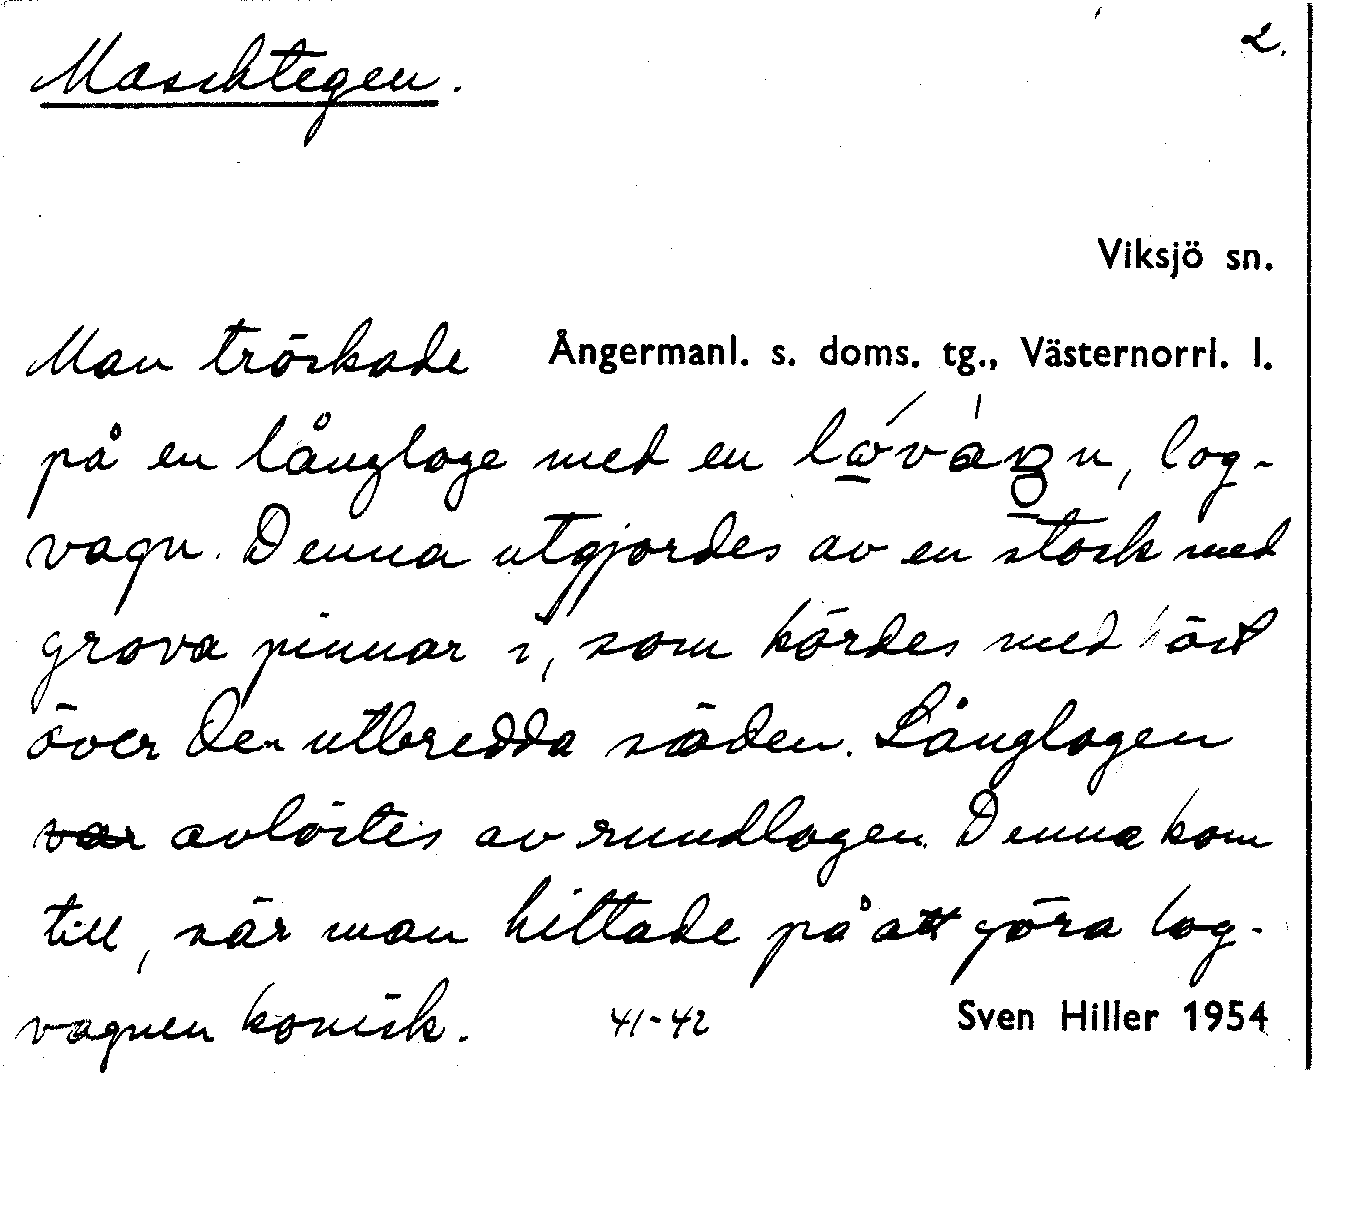 2.
Maschtegen.
Viksjö sn.
Man tröskade Ångermanl. s. doms. tg., Västernorrl. l.
på en långloge med en, log-
vagn. Denna utgjordes av en stock med
grova pinnar i, som kördes med häst
över den utbredda säden. Långlogen
var avlöstes av rundlogen. Denna kom
till, när man hittade på att göra log-
vagnen konisk. 41-42 Sven Hiller 1954